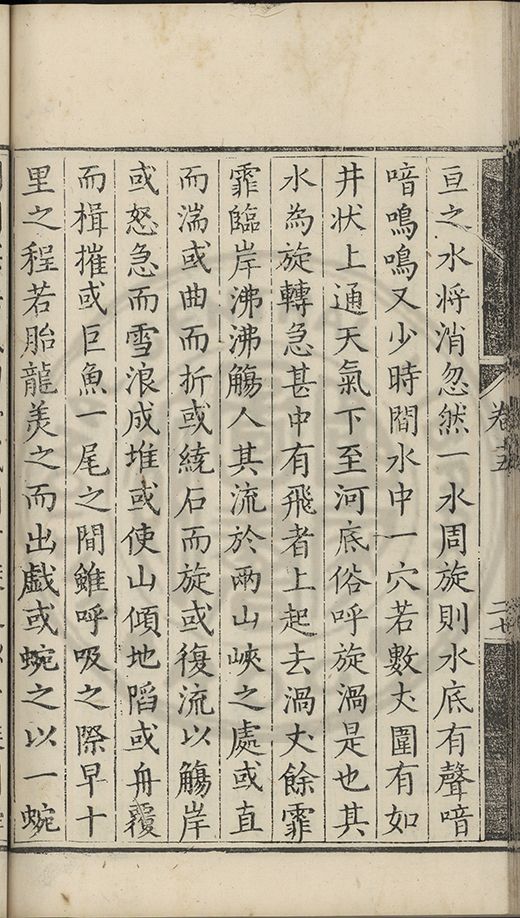 亘之水将消忽然一水周旋則水底有聲喑
喑鳴鳴又少時間水中一穴若數丈圍有如
井状上通天氣下至河底俗呼旋渦是也其
水為旋轉急甚中有飛者上起去渦丈餘霏
霏臨岸沸沸觴人其流於兩山峽之處或直
而湍或曲而折或繞石而旋或復流以觴岸
或怒急而雪浪成堆或使山傾地陷或舟覆
而楫摧或巨魚一尾之間雖呼吸之際早十
里之程若胎龍羡之而出戲或蜿之以一蜿
卷十五
二七